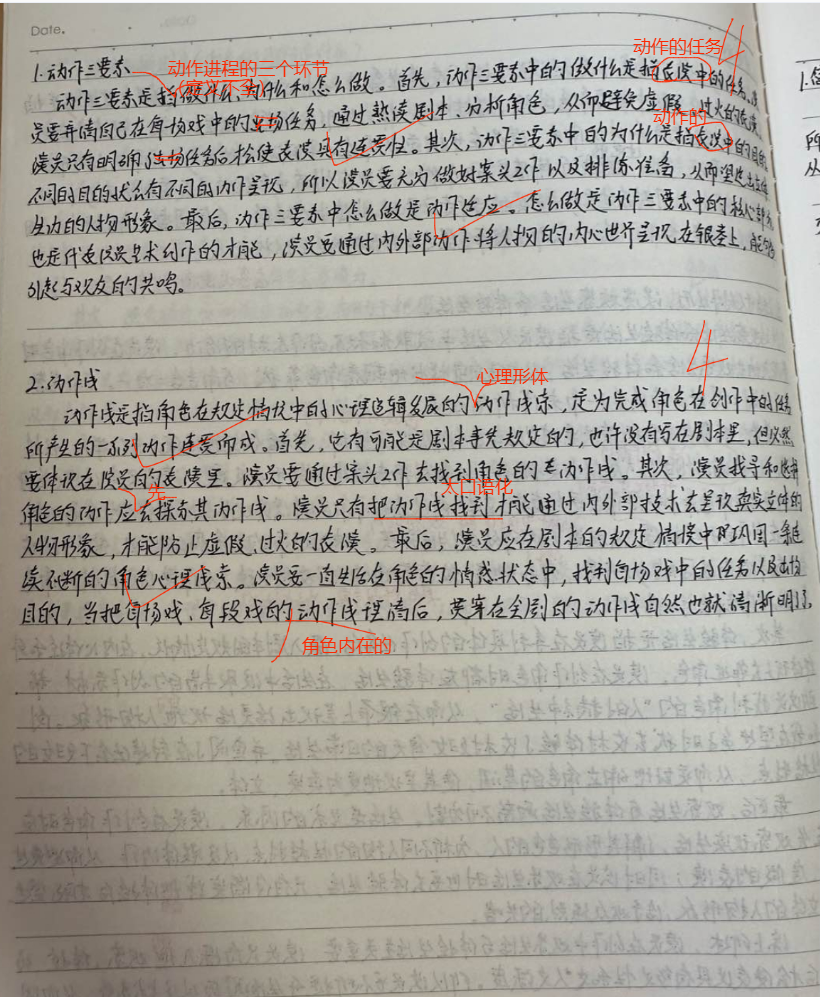 Date.
动作的任务
4
1.动作三要素
动作进程的三个环节
(定义不全)
动作三要素是指做什么、为什么和怎么做。首先,动作三要素中的做什么是指表演中的任务,演
员要弄清自己在每场戏中的当场任务,通过熟读剧本、分析角色,从而避免虚假、过火的表演。
动作的
演员只有明确了当场任务后才能使表演具有连贯性。其次,动作三要素中的为什么是指表演中的目的
不同的目的就会有不同的动作呈现,所以演员要充分做好案头工作以及排练准备,从而塑造出
生动的人物形象。最后,动作三要素中怎么做是动作适应。怎么做是动作三要素中的核心部分
也是代表演员艺术创作的才能,演员要通过内外部动作将人物的内心世界呈现在银幕上,能够
引起与观众的共鸣。
2.动作线
心理形体
4
动作线是指角色在规定情境中的心理逻辑发展的动作线索,是为完成角色在创作中的任务
所产生的一系列动作连贯而成。首先,它有可能是剧本事先规定的,也许没有写在剧本里,但必然
要体现在演员的表演里。演员要通过案头工作去找到角色的主动作线。其次,演员找寻和
先
人口语化
角色的动作应去探索其动作线。演员只有把动作线找到才能通过内外部技术去呈现真实立体的
人物形象,才能防止虚假、过火的表演。最后,演员应在剧本的规定情境中巩固一条连
续不断的角色心理线索。演员要一直生活在角色的情感状态中,找到每场戏中的任务以及当场
目的,当把每场戏、每段戏的动作线理清后,贯穿在全剧的动作线自然也就清晰明了。
角色内在的